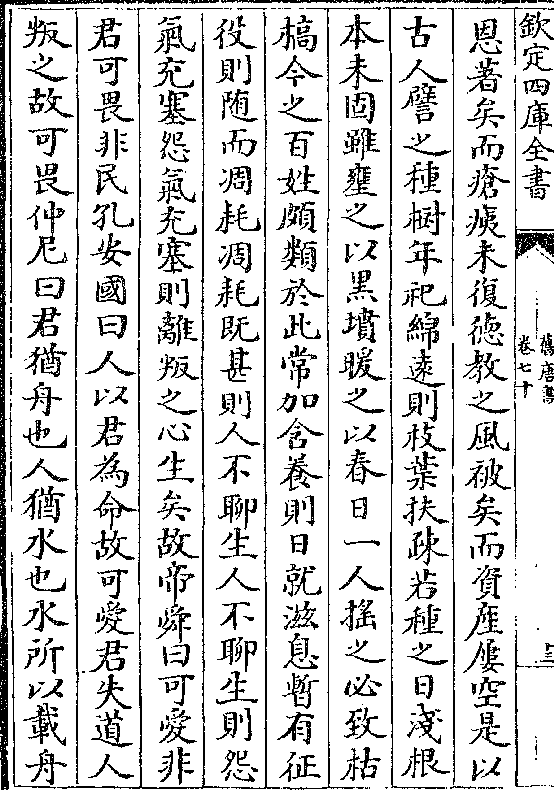 欽定四庫全書
舊唐書
卷七十
恩著矣而瘡痍未復德教之風被矣而資產屢空是以
古人譬之種樹年祀綿遠則枝葉扶疎若種之日淺根
本未固雖壅之以黑墳暖之以春日一人搖之必致枯
槁今之百姓頗類於此常加含養則日就滋息暫有征
役則随而凋耗凋耗既甚則人不聊生人不聊生則怨
氣充塞怨氣充塞則離叛之心生矣故帝舜曰可愛非
君可畏非民孔安國曰人以君為命故可愛君失道人
叛之故可畏仲尼曰君猶舟也人猶水也水所以載舟